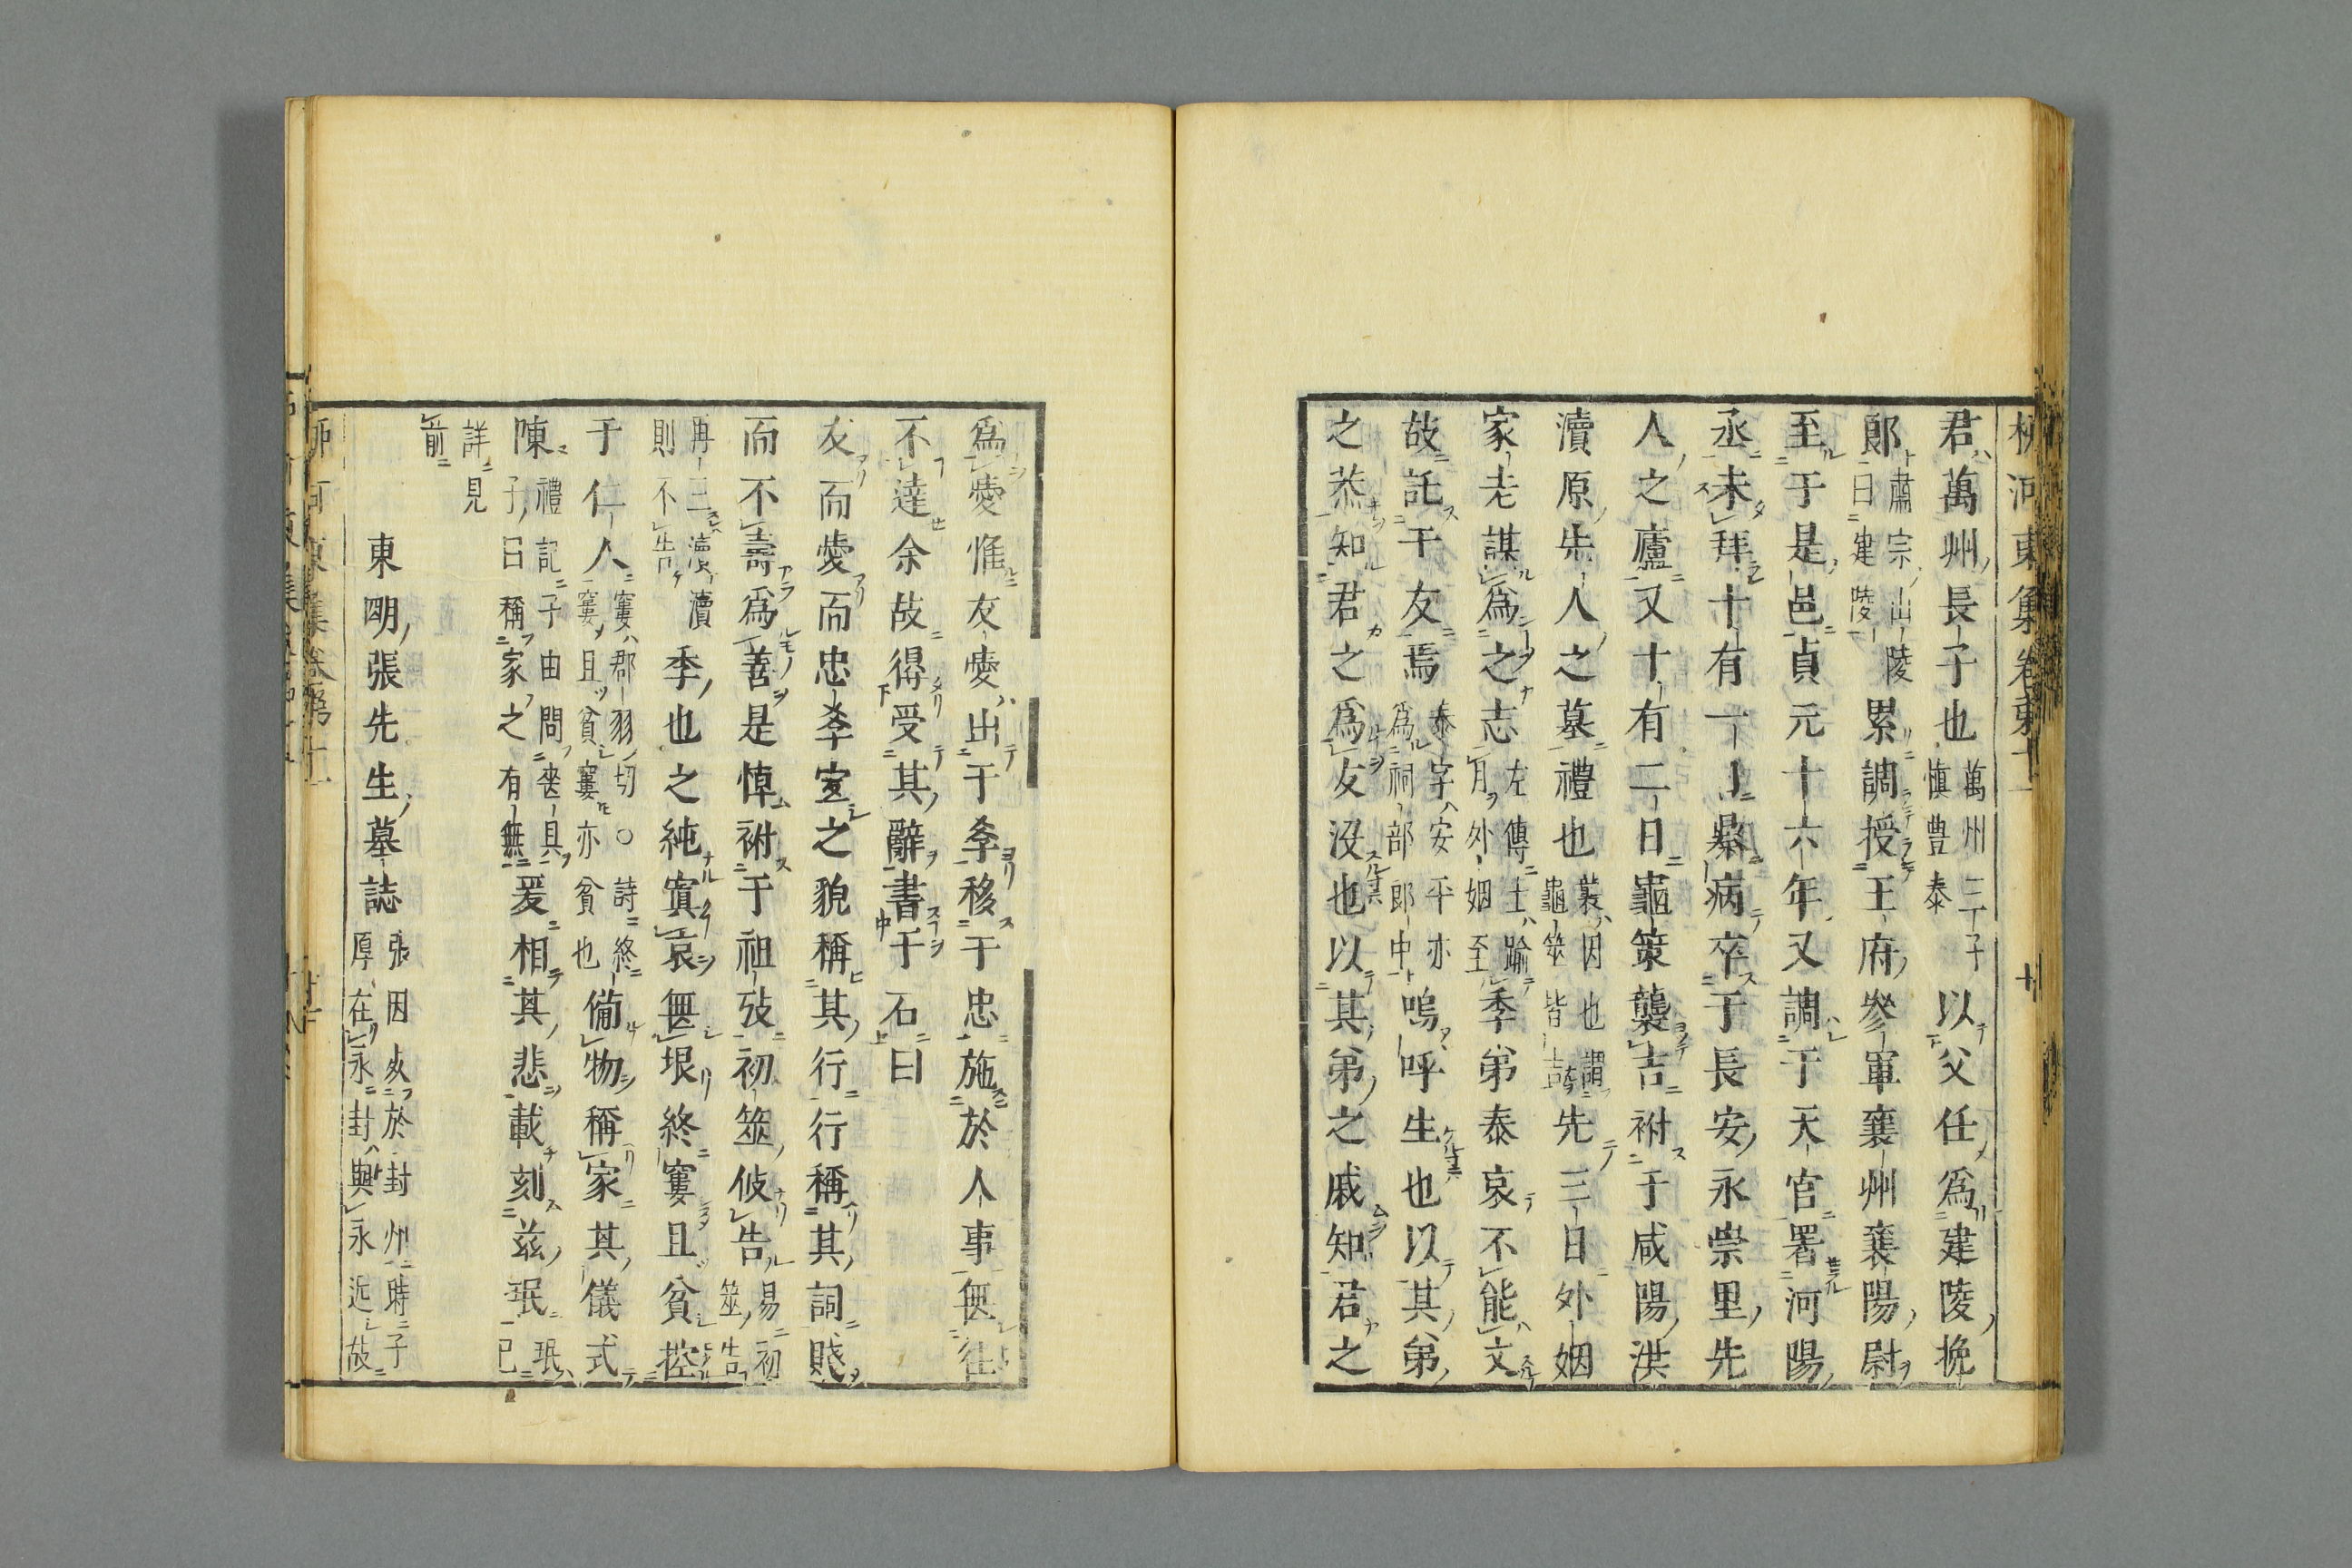 柳河東集卷第十一 十
君萬州長子也萬州三子慎豊泰以父任爲建陵挽
郎肅宗山陵曰建陵累調授王府參軍襄州襄陽尉
至于是邑貞元十六年又調于天官署河陽
丞未拜十有一月暴病卒于長安永崇里先
人之廬又十有二日龜策襲吉祔于咸陽洪
瀆原先人之墓禮也襲因也謂龜筮皆吉先三日外姻
家老謀爲之志左傳士踰月外姻至季弟泰哀不能文
故託于友焉泰字安平亦爲祠部郎中嗚呼生也以其弟
之恭知君之爲友沒也以其弟之戚知君之
爲愛惟友愛出于孝移于忠施於人事無往
不達余故得受其辭書于石曰
友而愛而忠孝宜之貌稱其行行稱其詞賤
而不壽爲善是悼祔于祖歿初筮攸告易初筮告
再三瀆瀆則不告季也之純寘哀無垠終窶且貧控
于仁人窶郡羽切○詩終窶且貧窶亦貧也備物稱家其儀式
陳禮記子由問喪具子曰稱家之有無爰相其悲載刻兹珉珉已
詳見前
東明張先生墓誌張因歿於封州時子厚在永封與永近故
柳河東集卷第十一